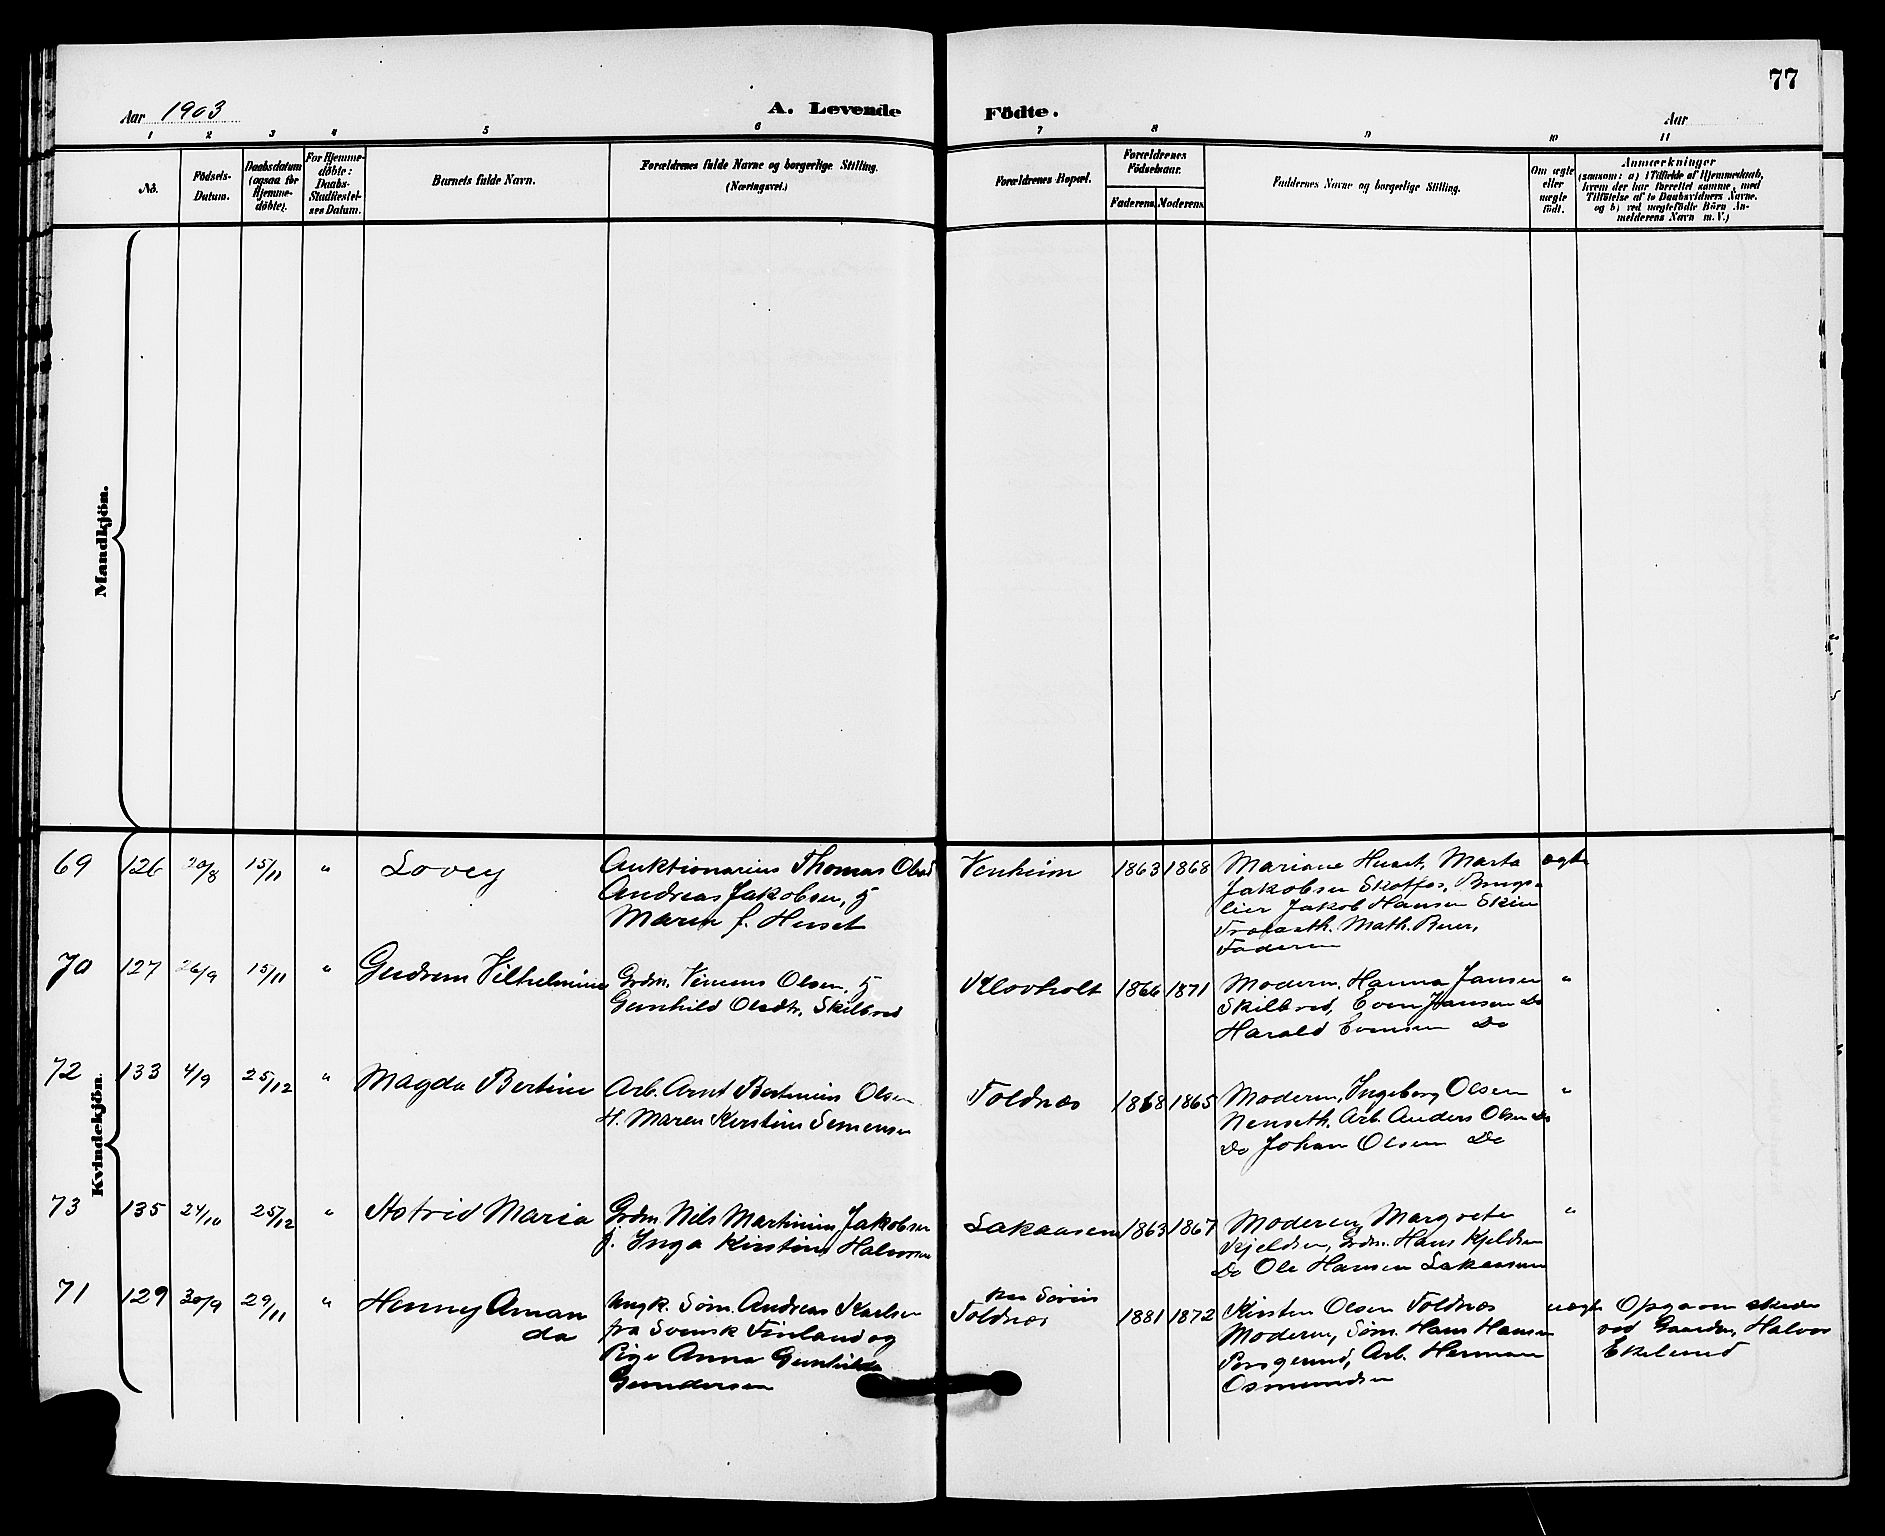 77
Aar 1903
A. Levende
Födte.
Aar
1 2 3 4 5 6 7 8 9 10 11
No.
Födsels-
Datum.
Daabsdatum
(ogsaa for
Hjemme-
döbte).
For Hjemme-
döbte:
Daabs-
Stadfæstel-
ses Datum.
Barnets fulde Navn.
Forældrenes fulde Navne og borgerlige Stilling.
(Næringsvei.)
Forældrenes Bopæl.
Forældrenes
Födselsaar.
Faderens.
Moderens.
Faddernes Navne og borgerlige Stilling.
Om ægte
eller
uægte
født.
Anmærkninger
(saasom: a) i Tilfælde af Hjemmedaab,
hvem der har forrettet samme, med
Tilföielse af to Daabsvidners Navne.
og b) ved uægtefödte Börn An-
melderens Navn m. V.)
Mandkjön.
Kvindekjön.
69 126 20/8 15/11 " Lovey
Auktionarius Thomas
Andreas Jakobsen, &
Maren f. Huset
Venheim 1863 1868
Mariane Huset, Marta
Jakobsen Skotfos, Brugs-
eier Jakob Hansen Skien
Math.
Faderen
ægte
70 127 26/9 15/11 " Gudrun Vilhelmine
Grdm. Olsen, &
Gunhild Olsdtr. Skilbred
Klovholt 1866 1871
Moderen, Hanna Jansen
Skilbred, Even Jansen Do
Harald Evensen Do
"
72 133 4/9 25/12 " Magda Bertine
Arb. Arnt Bertinius Olsen
H. Maren Kirstine Simensen
Toldnæs 1868 1865
Moderen, Ingeborg Olsen
Nenseth. Arb. Anders Olsen Do
Do Johan Olsen Do
"
73 135 24/10 25/12 " Astrid Maria
Grdm Nils Martinius Jakobsen
f. Inga Kirstine Halvorsen
Lakaasen 1863 1867
Moderen, Margrete
Kjeldsen, Grdm. Hans Kjeldsen
Do Ole Hansen Lakaasen
"
71 129 30/9 29/11 " Henny Aman
da
Ungk. Søm. Andreas Karlsen
fra Svensk Finland og
Pige Anna Gunhilda
Gundersen
Toldnæs 1881 1872
Kirsten Olsen Toldnæs
Moderen, Søm. Hans Hansen
Porsgrund, Arb. Herman
Osmundsen
uægte
Opgaven skede
ved Gaardm. Halvor
Ekelund